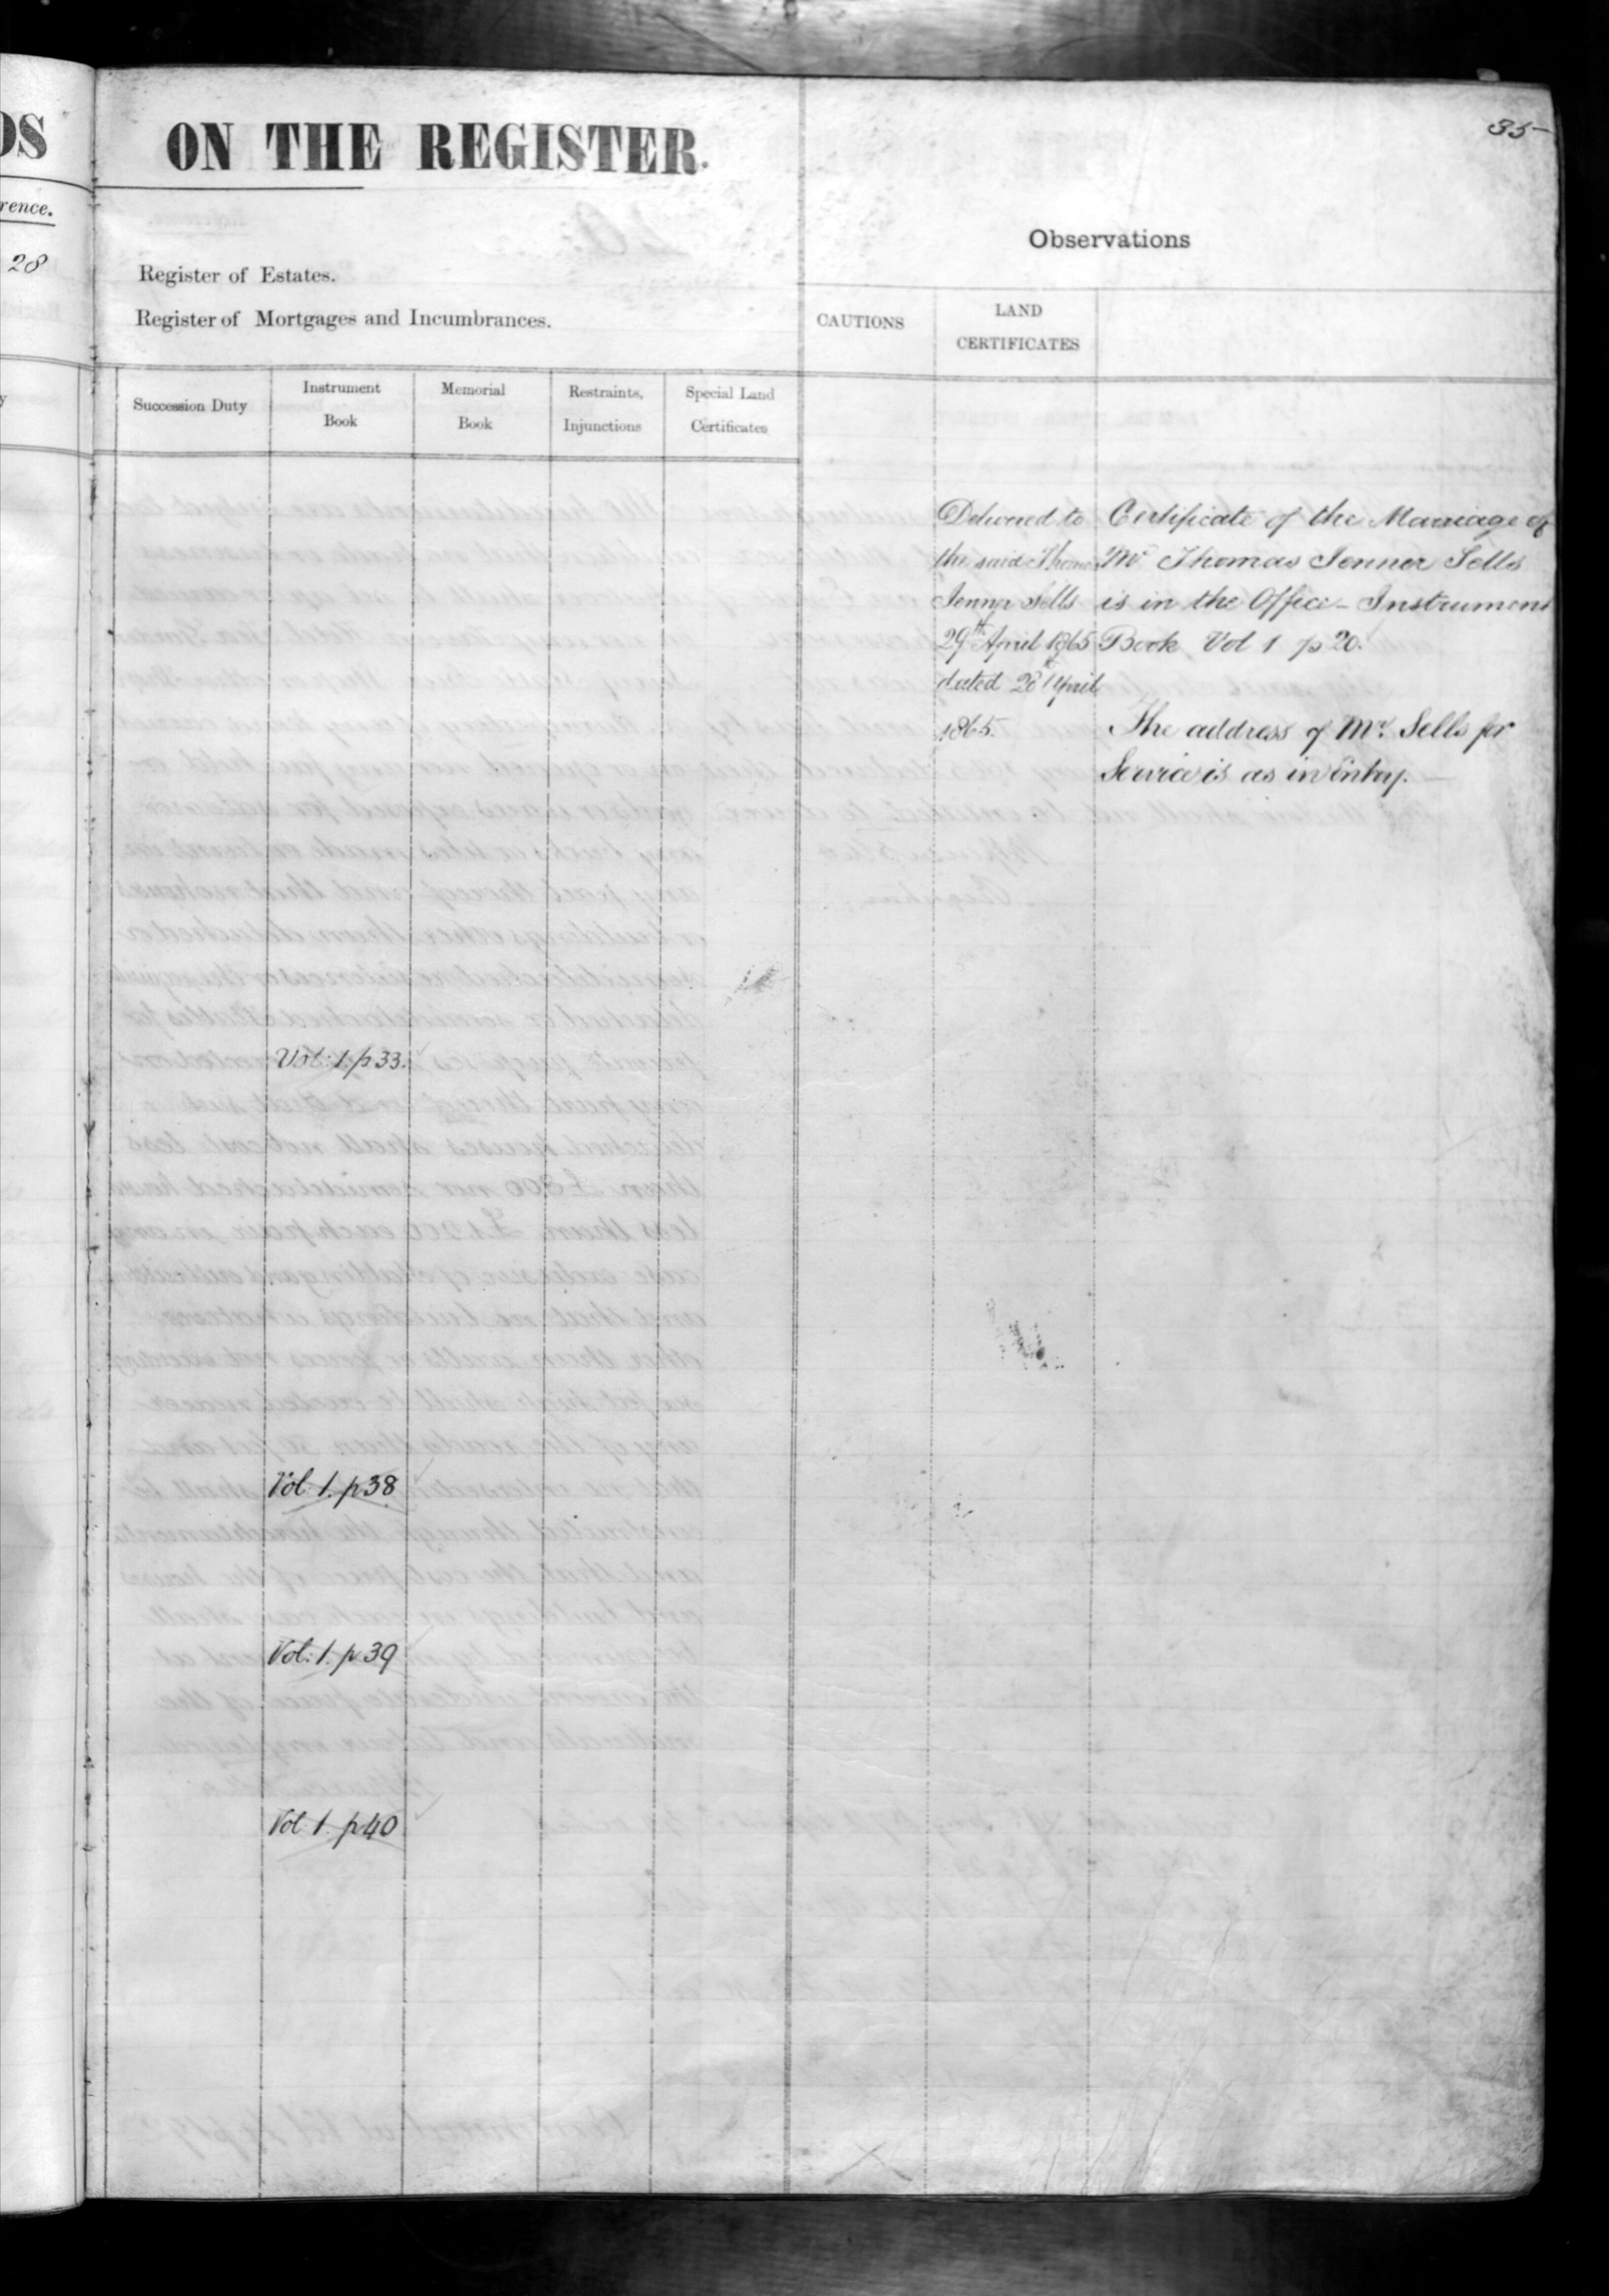 DS
rence.
28
y
ON THE REGISTER.
35
Register of Estates.
Register of Mortgages and Incumbrances.
Succession Duty
Instrument
Book
Memorial
Book
Restraints,
Injunctions
Special Land
Certificates
Observations
CAUTIONS
LAND
CERTIFICATES
Delivered to
the said Thomas
Jenner Sells
29th April 1865
dated 28th April
1865.
Certificate of the Marriage of
Mr Thomas Jenner Sells
is in the Office - Instrument
Book Vol 1 p 20.
The address of Mr. Sells for
Service is as in Entry.
Vol: 1. p 33.
Vol: 1. p 38
Vol: 1. p 39
Vol 1. p 40